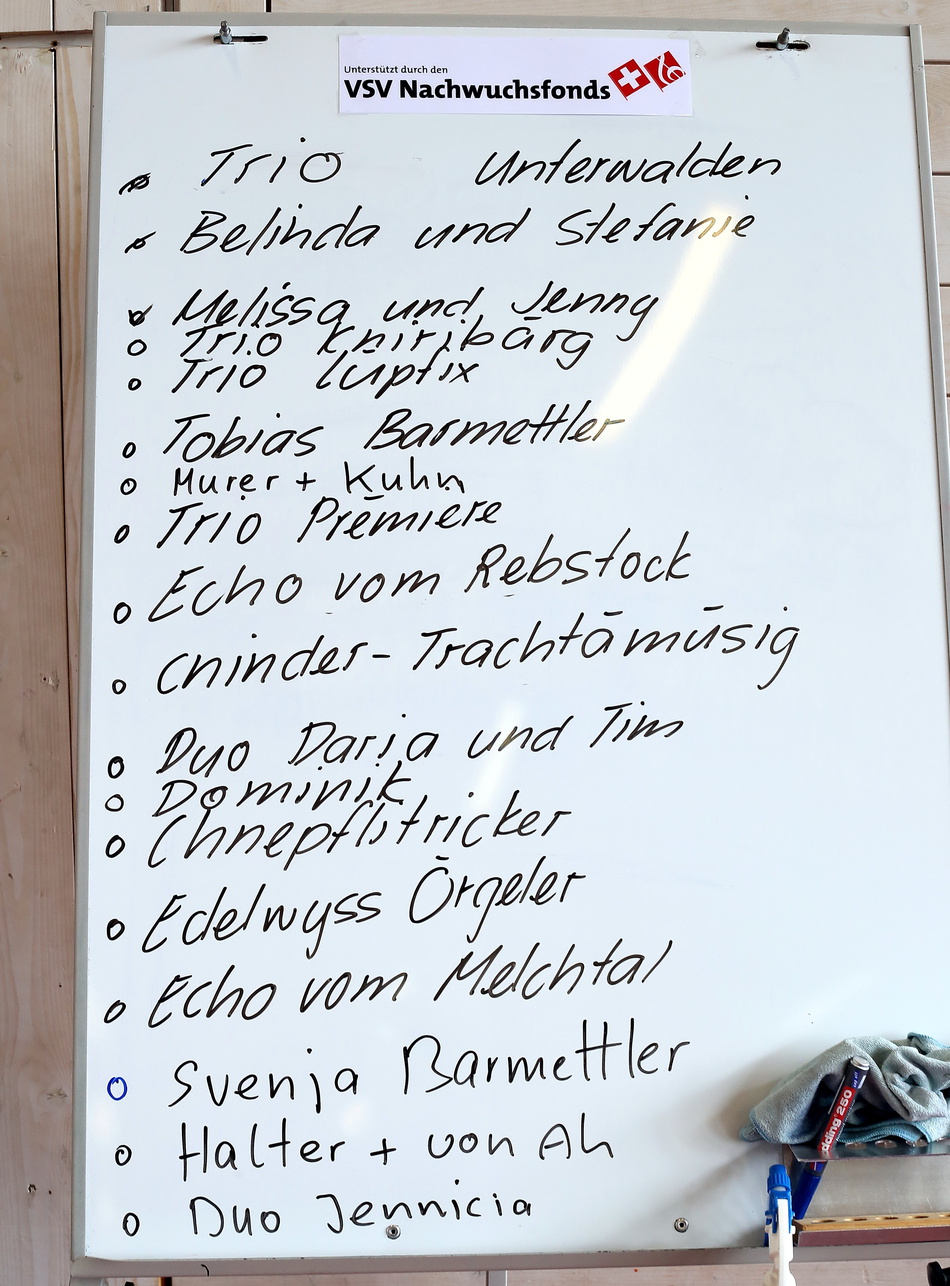 Unterstützt durch den
VSV Nachwuchsfonds
Trio Unterwalden
Belinda und Stefanie
Melissa und Jenny
Trio Kniribärg
Trio lüpfix
Tobias Barmettler
Murer + Kuhn
Trio Première
Echo vom Rebstock
Chinder-Trachtämüsig
Duo Darja und Tim
Dominik
Chnepflistricker
Edelwyss Örgeler
Echo vom Melchtal
Svenja Barmettler
Halter + von Ah
Duo Jennicia
edding 250